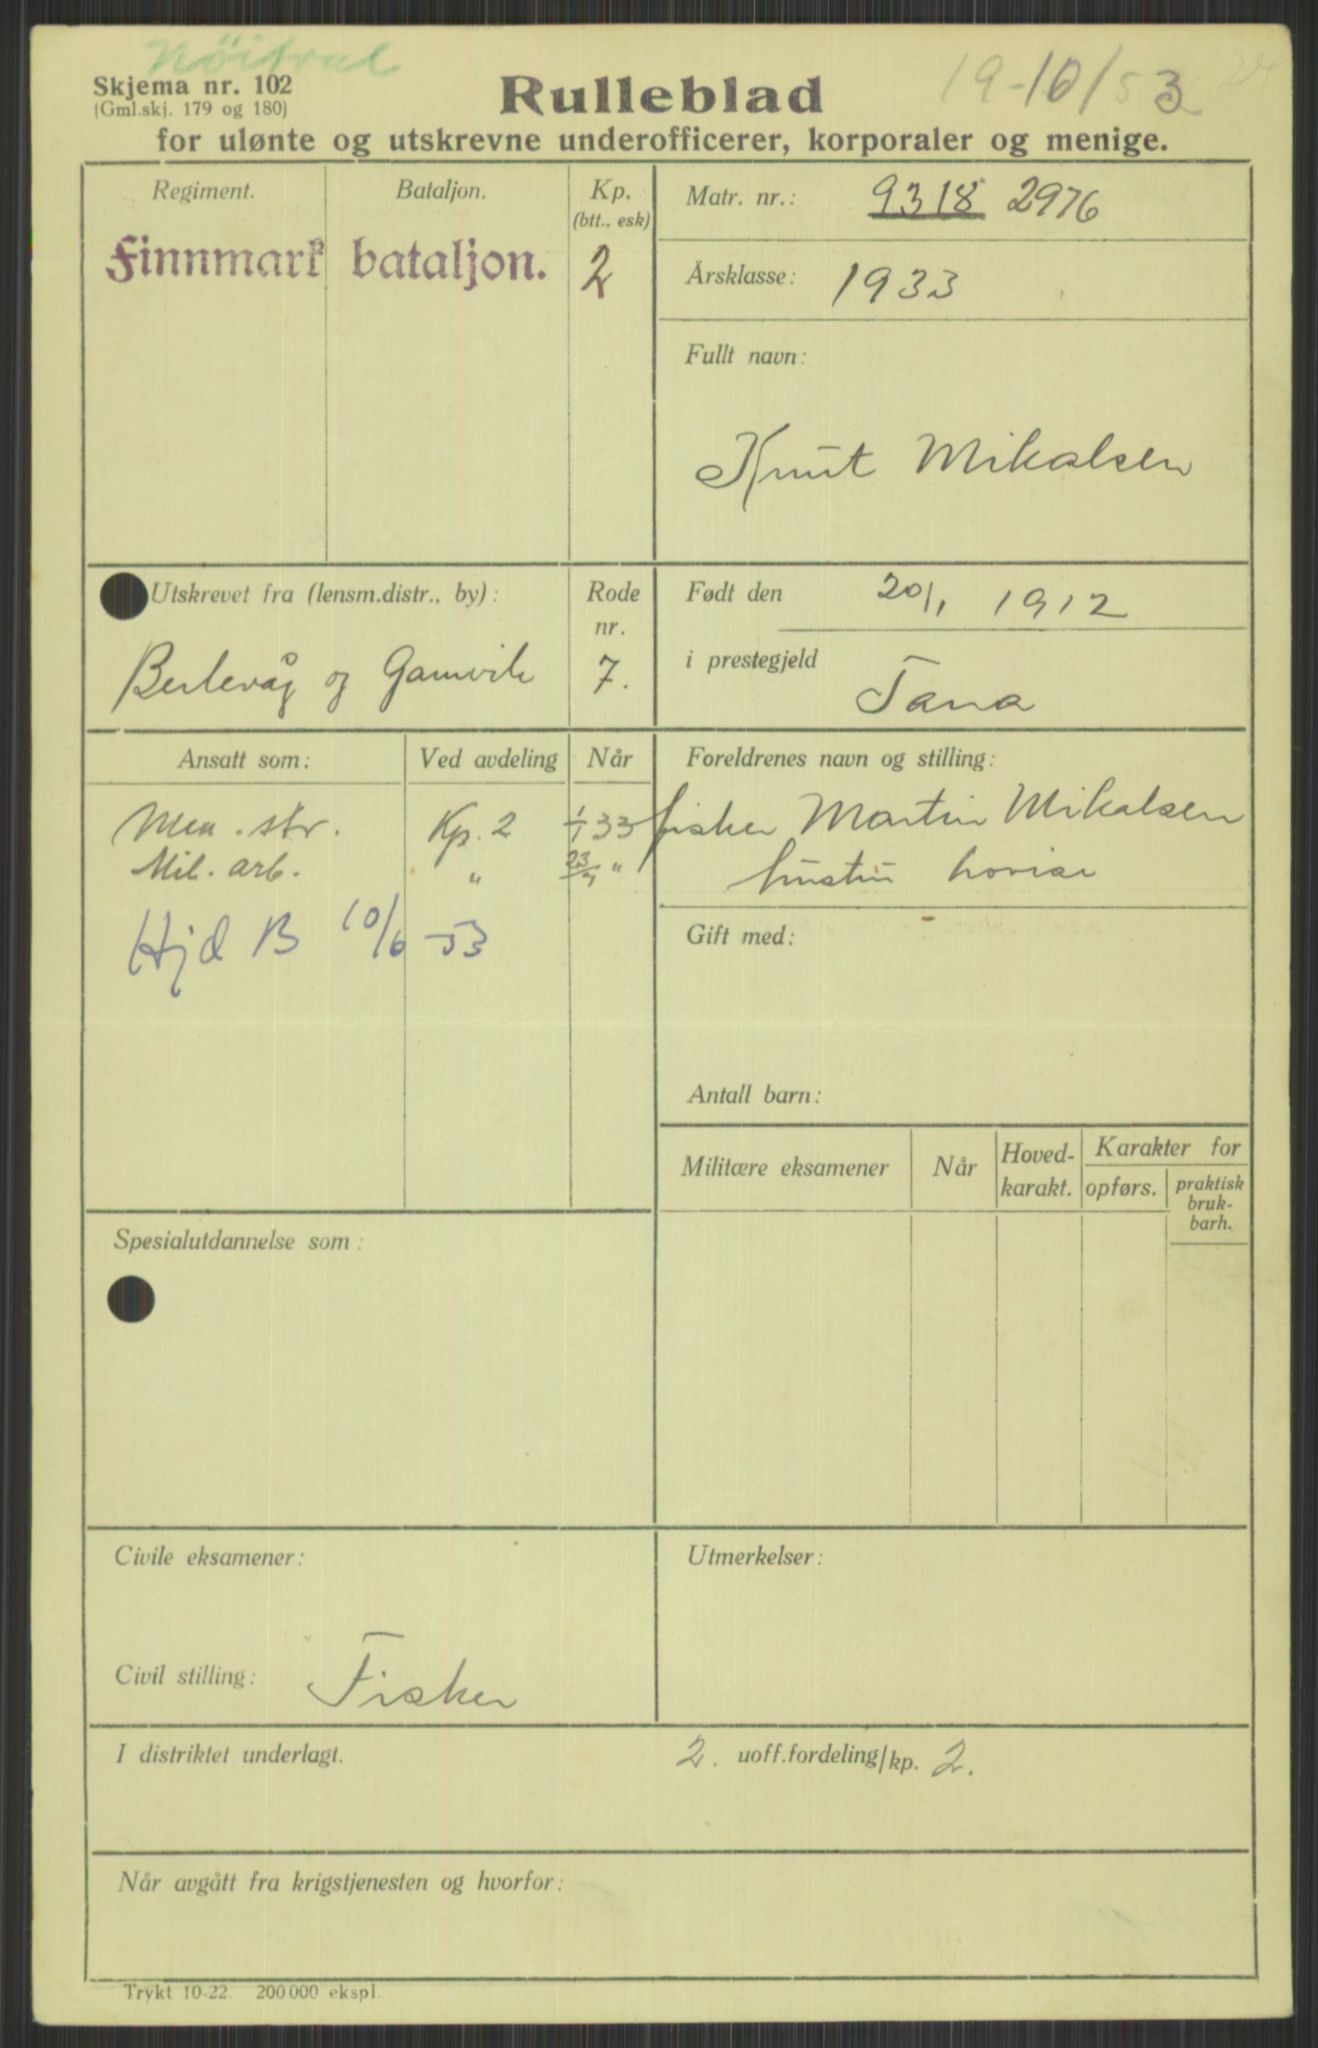 Nöitral
Skjema nr. 102
(Gml.skj. 179 og 180)
Rulleblad
19-10/53
24
for ulønte og utskrevne underofficerer, korporaler og menige.
Regiment.
Bataljon.
Kp.
(btt., esk)
Finnmark bataljon.
2
Matr. nr.: 9318 2976
Årsklasse: 1933
Fullt navn:
Knut Mikalsen
Utskrevet fra (lensm.distr., by):
Berlevåg og Gamvik
Rode
nr.
7.
Født den 20/1 1912
i prestegjeld Tana
Ansatt som:
Ved avdeling
Når
Men. str. Kp. 2 1/1 33
Mil. arb. " 23/7 "
Hjd B 10/6 -53
Foreldrenes navn og stilling:
fisker Martin Mikalsen
hustru Lovise
Gift med:
Antall barn:
Militære eksamener
Når
Hoved-
karakt.
Karakter for
opførs.
praktisk
bruk-
barh.
Spesialutdannelse som:
Civile eksamener:
Civil stilling: Fisker
Utmerkelser:
I distriktet underlagt. 2. uoff.fordeling/kp. 2.
Når avgått fra krigstjenesten og hvorfor:
Trykt 10-22. 200 000 ekspl.